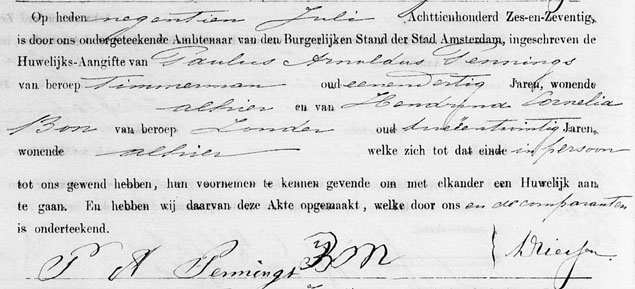 Op heden negentien Juli Achttienhonderd Zes-en-Zeventig,
is door ons ondergeteekende Ambtenaar van den Burgerlijken Stand der Stad Amsterdam, ingeschreven de
Huwelijks-Aangifte van Paulus Arnoldus Pennings
van beroep Timmerman oud eenendertig Jaren, wonende
alhier en van Hendrina Cornelia
Bon van beroep Zonder oud tweeentwintig Jaren,
wonende alhier welke zich tot dat einde in persoon
tot ons gewend hebben, hun voornemen te kennen gevende om met elkander een Huwelijk aan
te gaan. En hebben wij daarvan deze Akte opgemaakt, welke door ons en de comparanten
is onderteekend.
P A Pennings